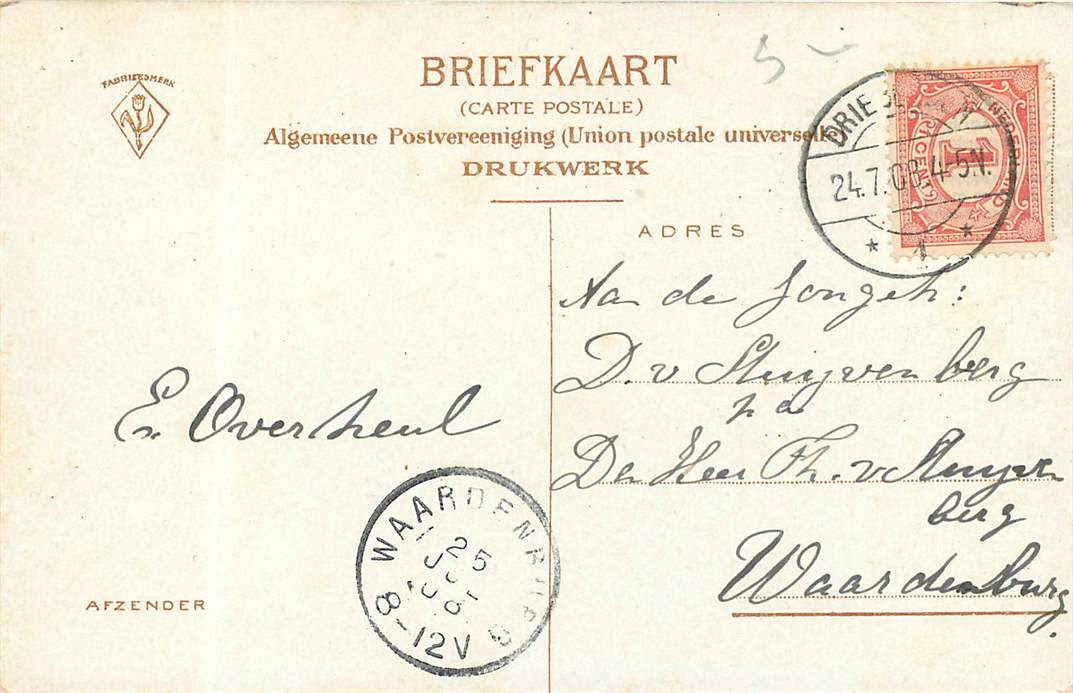 FABRIEKSMERK
BRIEFKAART
(CARTE POSTALE)
Algemeene Postvereeniging (Union postale universelle)
DRUKWERK
5-
24.7.08 4-5N.
* 1 *
1
CENT
ADRES
Aan de Jongeh:
D. v Stuyvenberg
p a
E. Overheul
Den Heer Th. v Stuyven
berg
Waardenburg.
WAARDENBURG
25
8-12V
AFZENDER